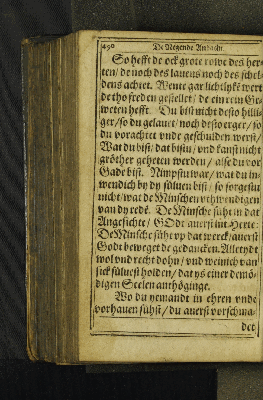 490 De Negende Andacht.
So hefft de ock grote rowe des her-
ten/ de noch des lavens noch des schel-
dens achtet. Wente gar lichtlyk wert
de tho freden gestellet/ de ein rein Ge-
weten hefft. Du bist nicht desto hilli-
ger/ so du gelavet/ noch desto erger/ so
du vorachtet vnde geschulden werst/
Wat du bist/ dat bistu/ vnd kanst nicht
gröther geheten werden/ alse du vor
Gade bist. Nimpstu war/ wat du in-
wendich by dy sülven bist/ so sorgestu
nicht/ wat de Minschen vthwendigen
van dy redē. De Minsche süht in dat
Angesichte/ GOdt averst int Herte:
De Minsche süht vp dat werck/ averst
Godt beweget de gedancken. Alletydt
wol vnd recht dohn/ vnd weinich van
sick sülvest holden/ dat ys einer demö-
digen Seelen anthöginge.
Wo du yemandt in ehren vnde
vorhaven sühst/ du averst vorschma-
det